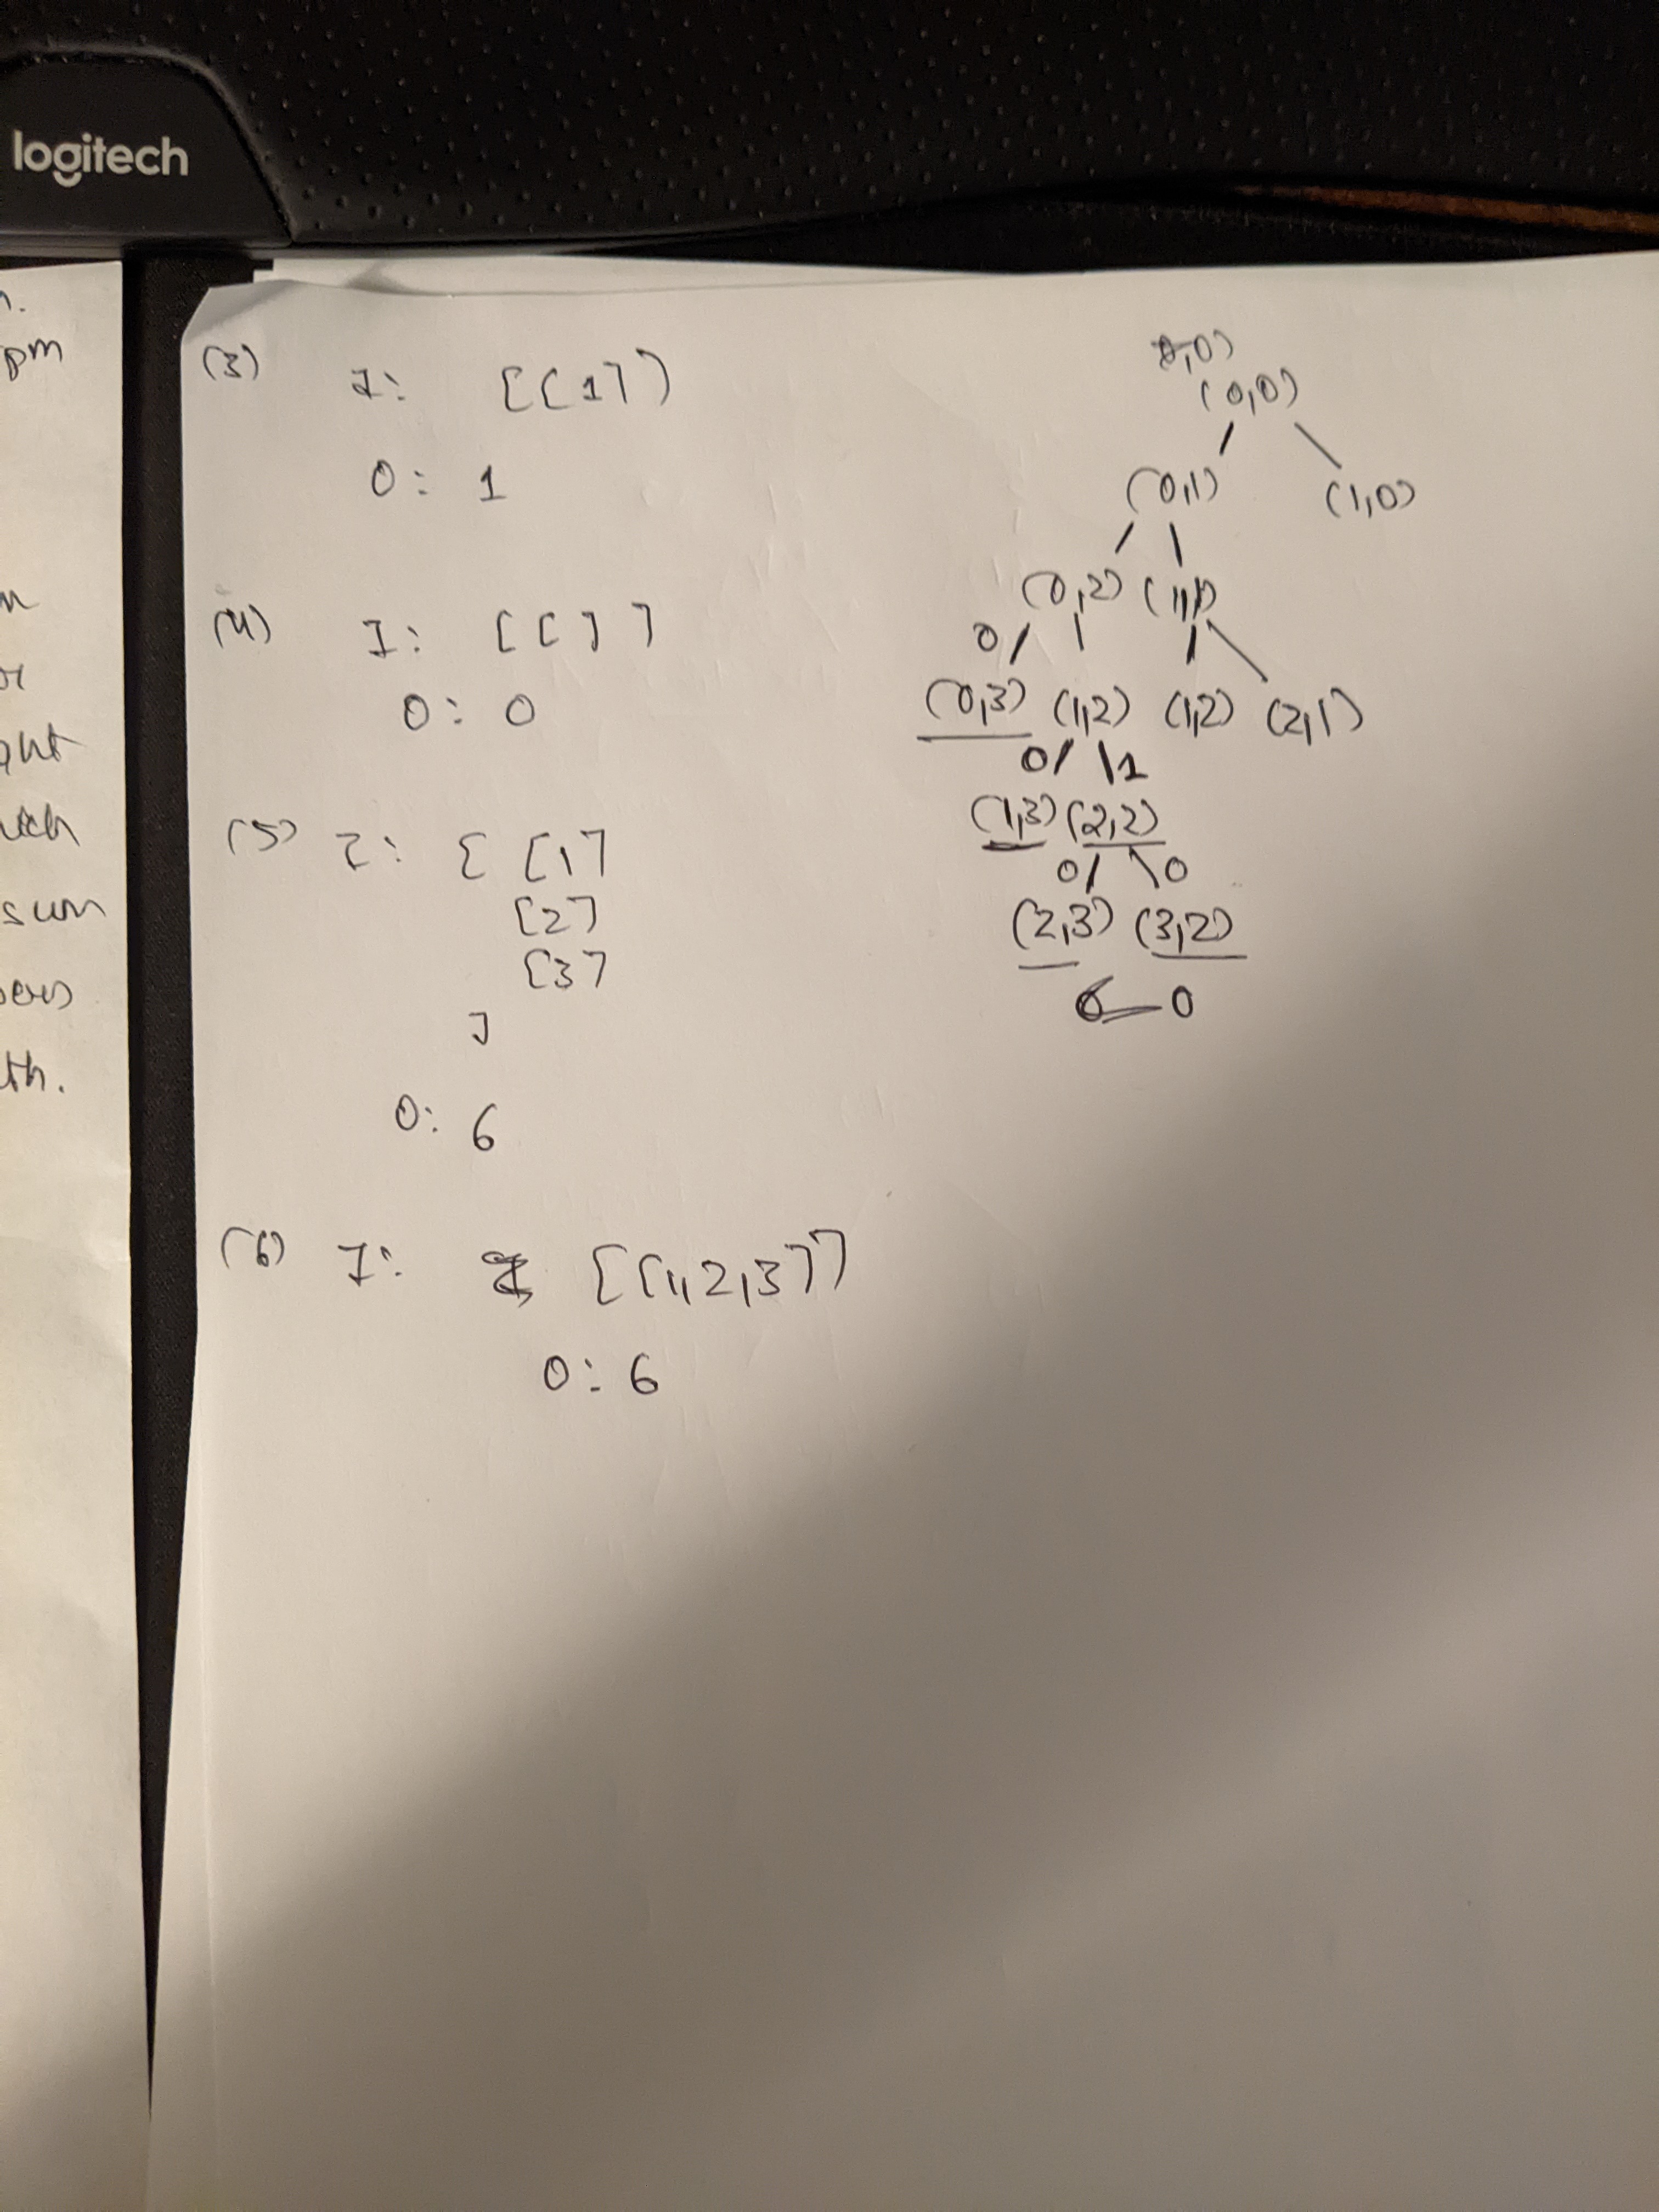 logitech
n.
pm
m
or
ant
uch
sum
bers
th.
(3) I: [[1])
O: 1
(4) I: [[]]
O: 0
(5) I: [ [1]
[2]
[3]
]
O: 6
(6) I: [[1,2,3]]
O: 6
(0,0)
(0,1) (1,0)
(0,2) (1,1)
0
(0,3) (1,2) (1,2) (2,1)
0 1
(1,3) (2,2)
0 0
(2,3) (3,2)
0